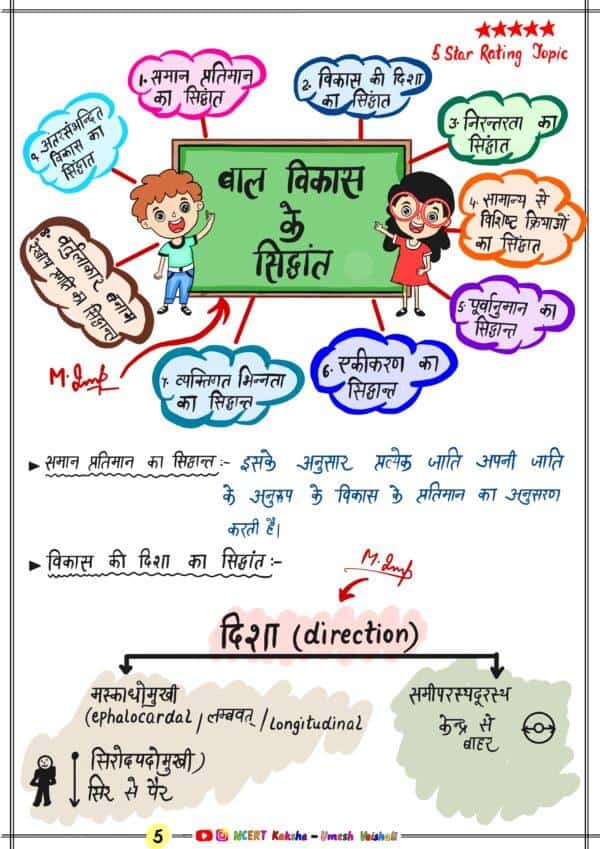 ★★★★★
5 Star Rating Topic
1. समान प्रतिमान
का सिद्वांत
2. विकास की दिशा
का सिद्वांत
3. निरन्तरता का
सिद्वांत
4. सामान्य से
विशिष्ट क्रियाओं
का सिद्वांत
5. पूर्वानुमान का
सिद्वान्त
6. एकीकरण का
सिद्वान्त
7. व्यक्तिगत भिन्नता
का सिद्वान्त
8. वर्तुलाकार बनाम
रेखीय प्रगति का सिद्वान्त
9. अंतरसंभन्दित
विकास का
सिद्वांत
बाल विकास
के
सिद्वांत
M. Imp
► समान प्रतिमान का सिद्वान्त :- इसके अनुसार प्रत्येक जाति अपनी जाति
के अनुरूप के विकास के प्रतिमान का अनुसरण
करती है।
► विकास की दिशा का सिद्वांत :-
M. Imp
दिशा (direction)
मस्काधोमुखी
(ephalocardal / लम्बवत् / Longitudinal
सिरोदयदोमुखी)
सिर से पैर
समीपरस्थदूरस्थ
केन्द्र से
बाहर
5
NCERT Kaksha – Umesh Vaishali